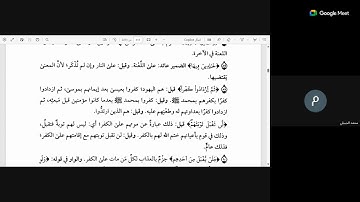 Google Meet
اللعنة في الآخرة.
﴿خَالِدِينَ فِيهَا﴾ الضمير عائد: على اللَّعنة. وقيل: على النار وإن لم تُذْكَر؛ لأنَّ المعنى
يقتضيها.
﴿ثُمَّ ازْدَادُوا كُفْرًا﴾ قيل: هم اليهود؛ كفروا بعيسى بعد إيمانهم بموسى، ثم ازدادوا
كفرًا بكفرهم بمحمد ﷺ. وقيل: كفروا بمحمد ﷺ بعدما كانوا مؤمنين قبل مَبعثِه، ثم
ازدادوا كفرًا بعداوتهم له وطعنهم عليه. وقيل: هم الذين ارتدُّوا.
﴿لَنْ تُقْبَلَ تَوْبَتُهُمْ﴾ قيل: ذلك عبارةٌ عن موتهم على الكفر؛ أي: ليس لهم توبةٌ فتُقبل،
وذلك في قوم بأعيانهم ختم الله لهم بالكفر. وقيل: لن تقبل توبتهم مع إقامتهم على الكفر؛
فذلك عامٌّ.
﴿فَلَنْ يُقْبَلَ مِنْ أَحَدِهِمْ﴾ جزمٌ بالعذاب لكلِّ مَن مات على الكفر. والواو في قوله: ﴿وَلَوِ